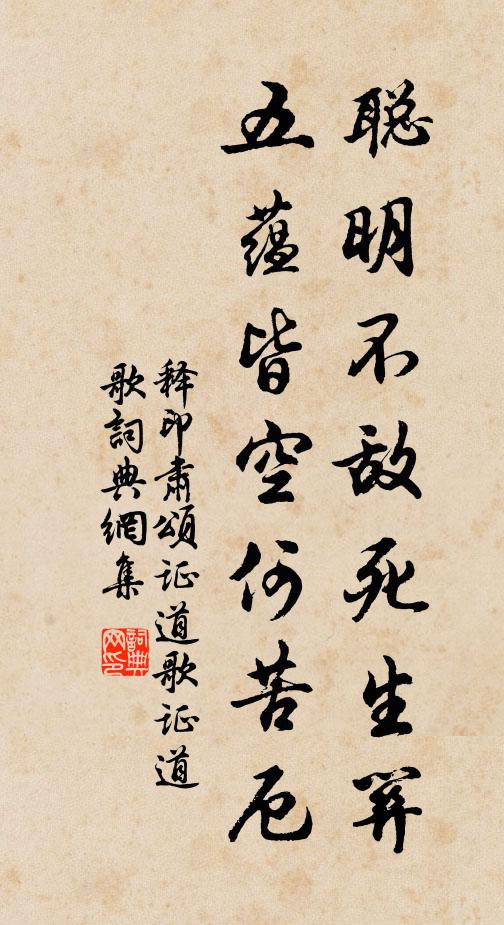 聪明不敌死生
五蕴皆空何苦厄
释印肃頌证道歌证道
歌詞典網集
詞典网印